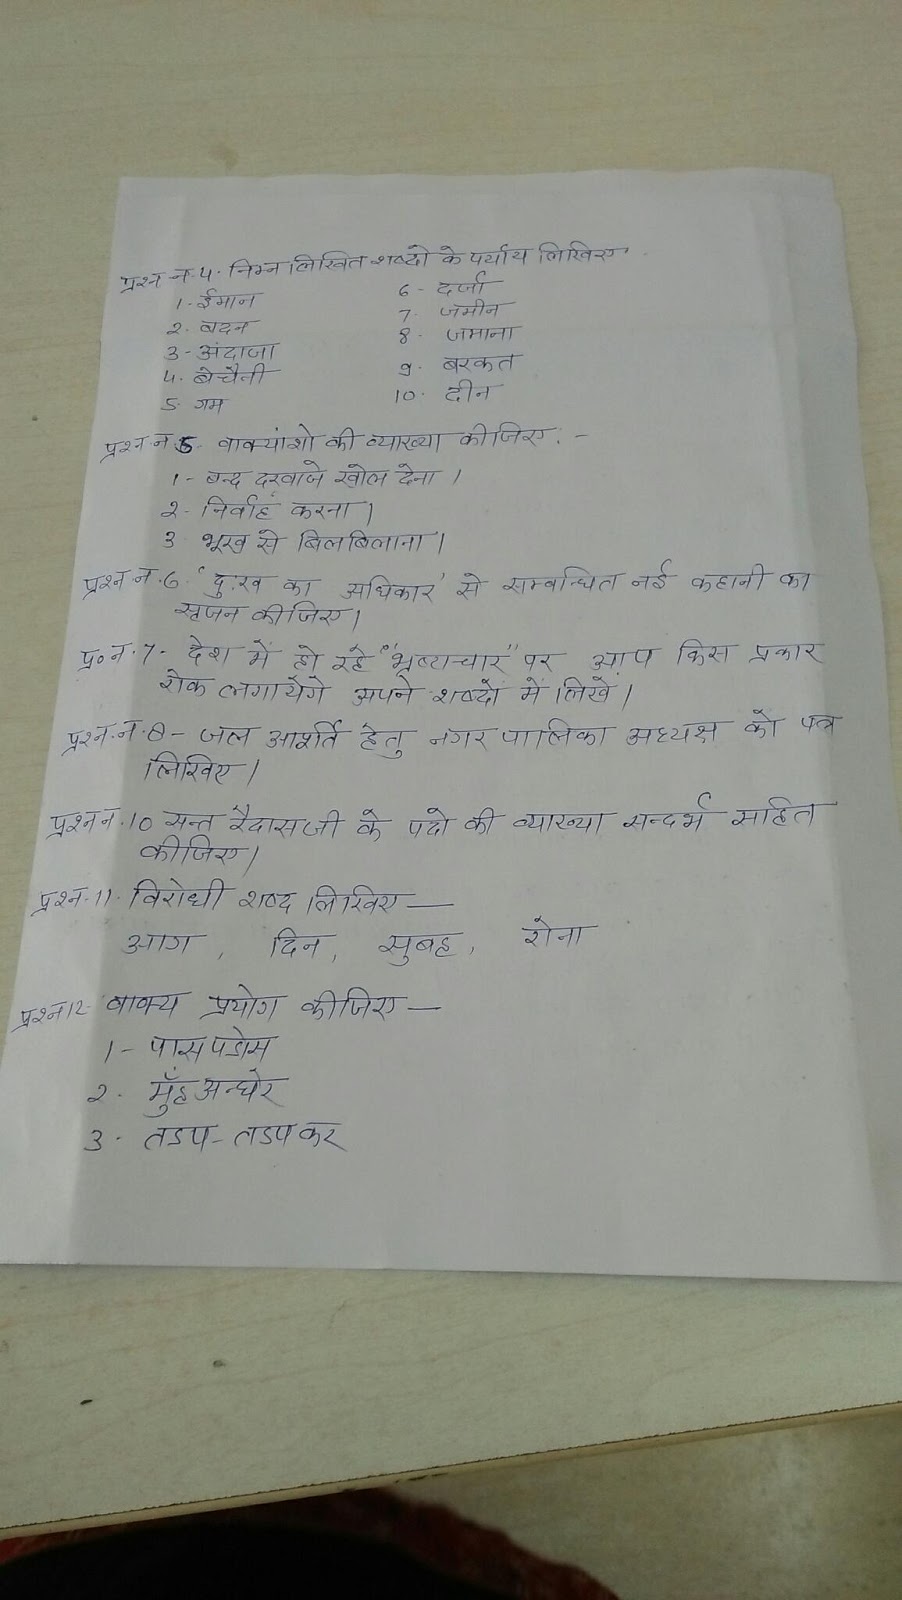 प्रश्न न.4. निम्न लिखित शब्दो के पर्याय लिखिए.
1. ईमान
2. बदन
3- अंदाजा
4. बेचैनी
5. गम
6- दर्जा
7. जमीन
8. जमाना
9. बरकत
10. दीन
प्रश्न न 5. वाक्यांशो की व्याख्या कीजिए:-
1- बन्द दरवाजे खोल देना।
2- निर्वाह करना।
3 भूख से बिलबिलाना।
प्रश्न न.6 'दुःख का अधिकार' से सम्बन्धित नई कहानी का
सृजन कीजिए।
प्र०न.7- देश में हो रहे "भ्रष्टाचार" पर आप किस प्रकार
रोक लगायेगें अपने शब्दों में लिखें।
प्रश्न.न.8- जल आपूर्ति हेतु नगर पालिका अध्यक्ष को पत्र
लिखिए।
प्रश्नन.10 सन्त रैदासजी के पदो की व्याख्या सन्दर्भ सहित
कीजिए।
प्रश्न.11. विरोधी शब्द लिखिए—
आग, दिन, सुबह, रोना
प्रश्न12- वाक्य प्रयोग कीजिए—
1- पास पडोस
2. मुँह अन्धेर
3- तडप-तडप कर